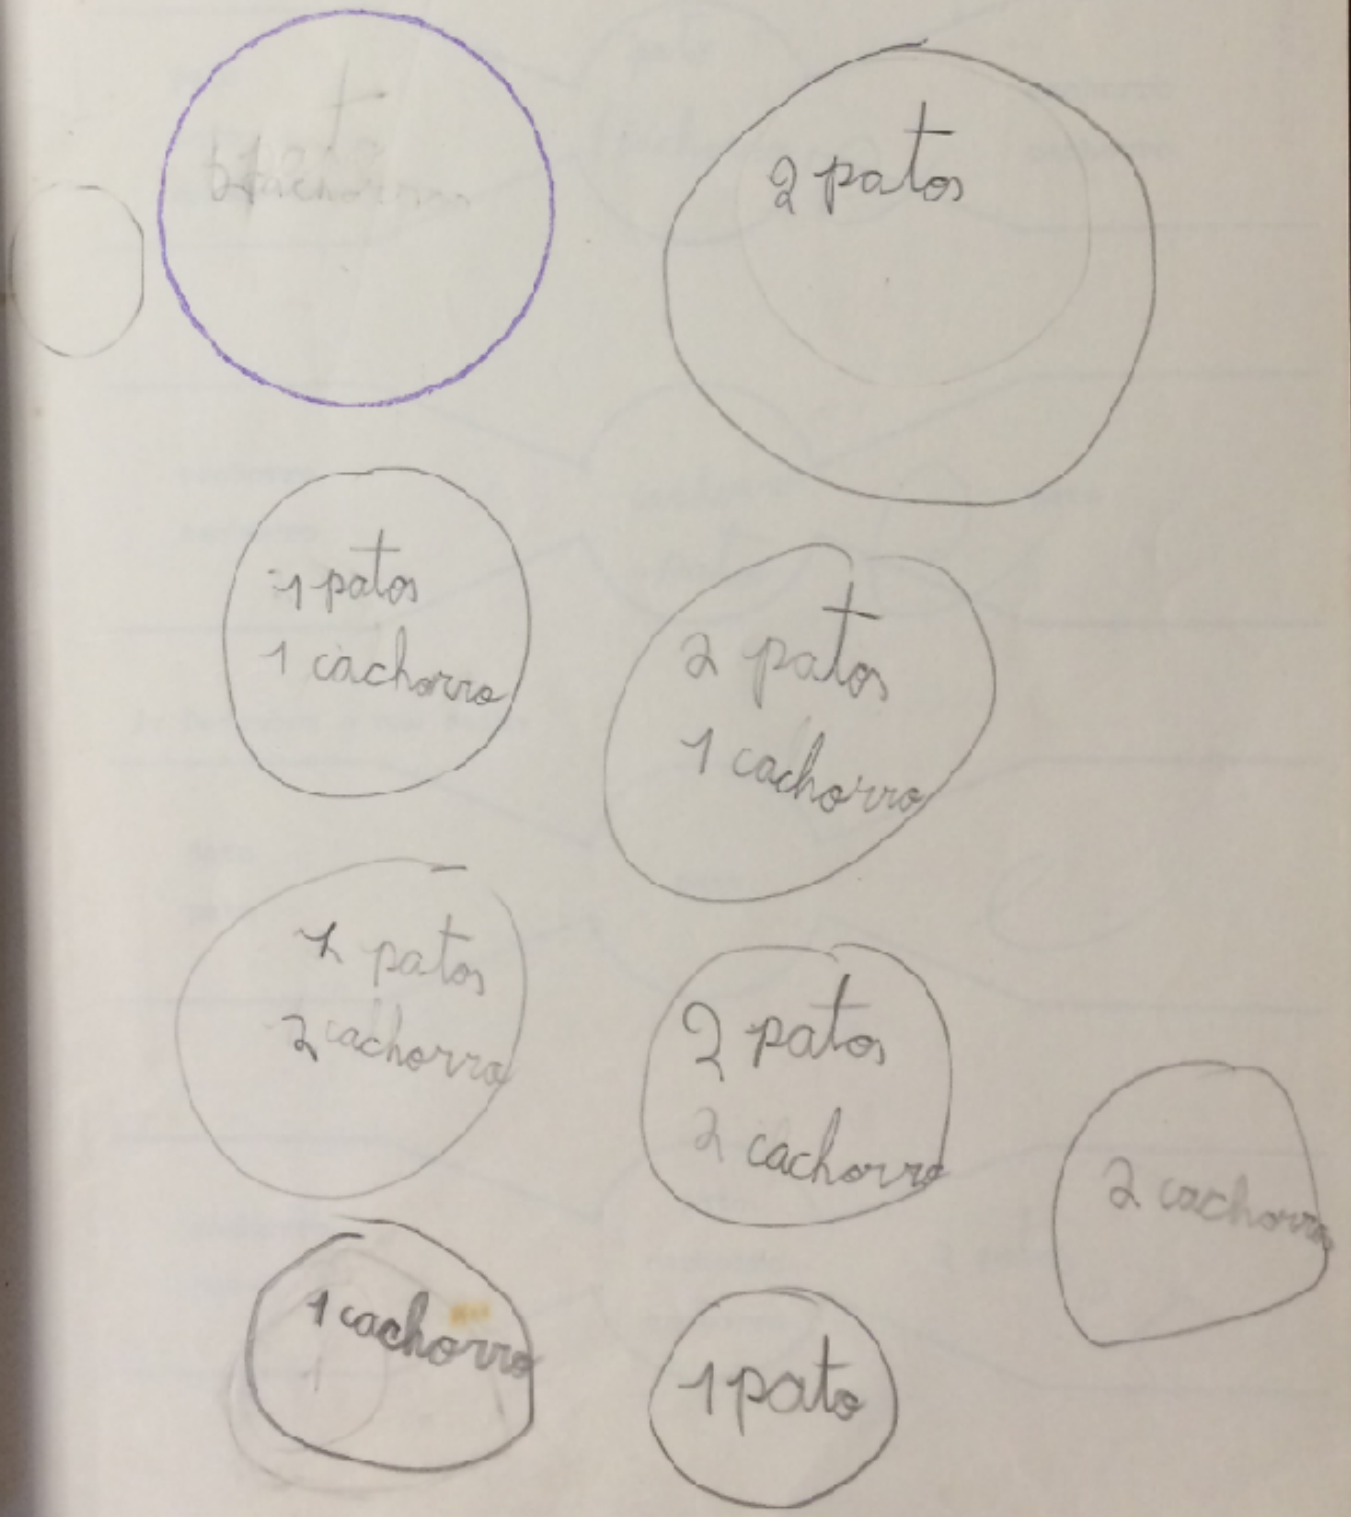 2 patos
1 patos
1 cachorro
2 patos
1 cachorro
1 patos
2 cachorro
2 patos
2 cachorro
2 cachorro
1 cachorro
1 pato